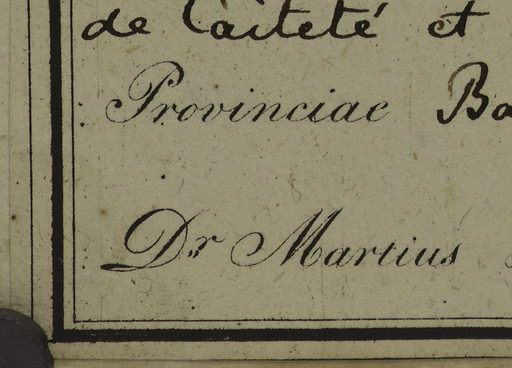 de Caiteté et
Provinciae Ba
Dr Martius